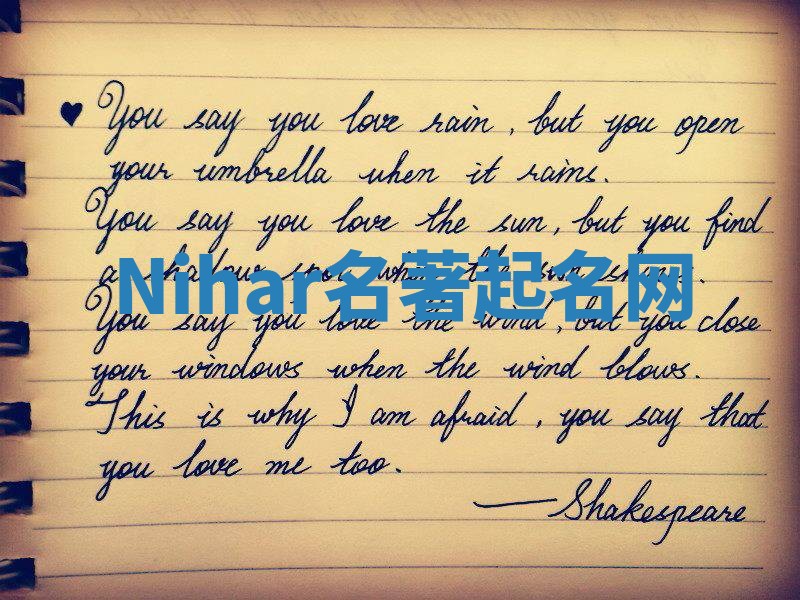 ♥ You say you love rain, but you open
your umbrella when it rains.
You say you love the sun, but you find
a shadow spot when the sun shines.
Nihar名著起名网
You say you love the wind, but you close
your windows when the wind blows.
This is why I am afraid, you say that
you love me too.
— Shakespeare